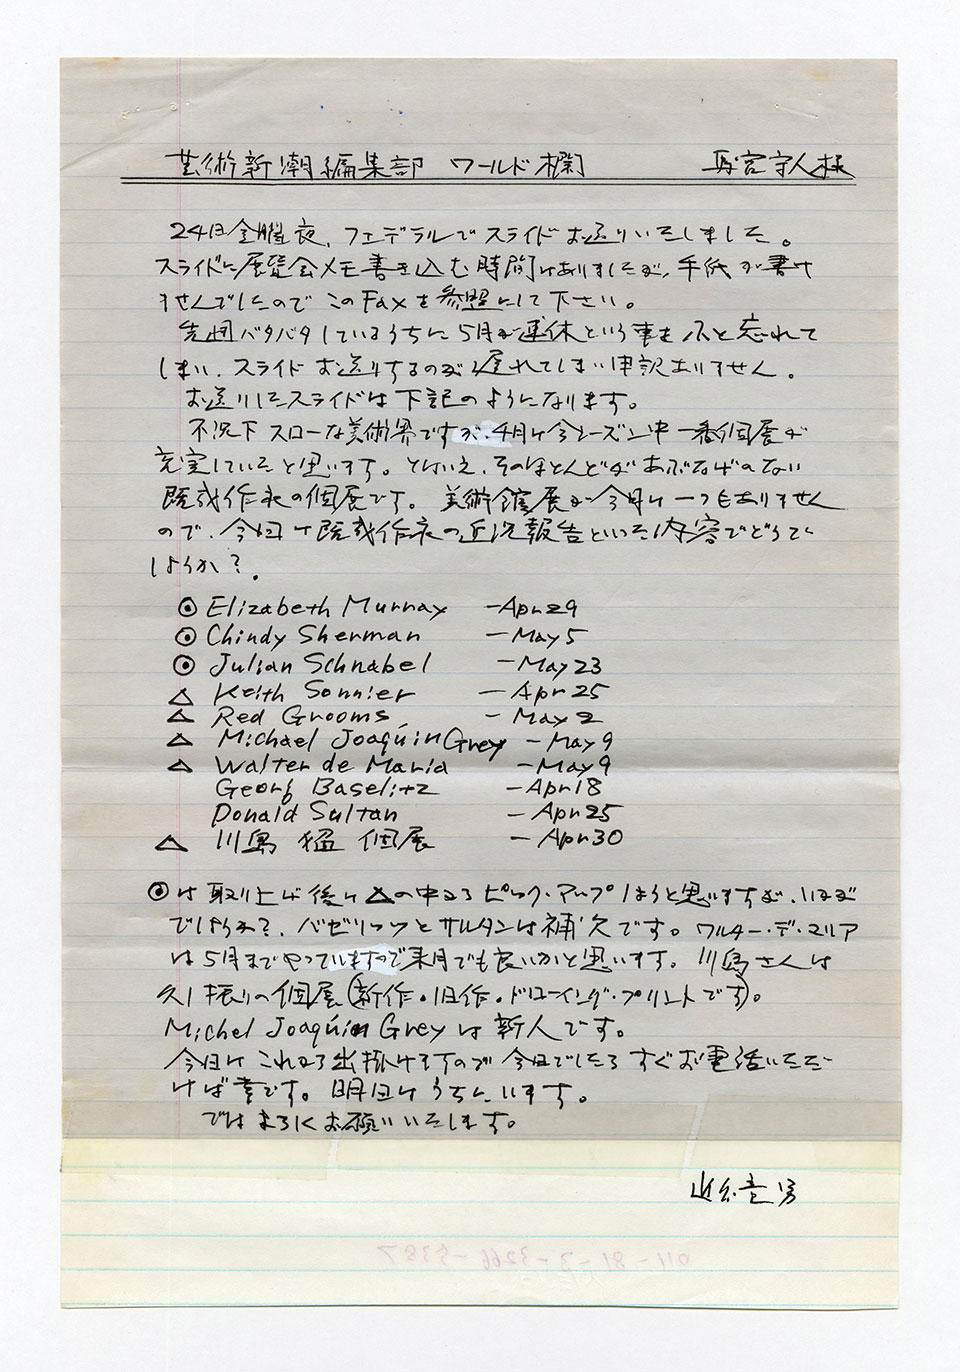 芸術新潮編集部 ワールド欄 馬宮守人様
24日金曜夜、フェデラルでスライドお送りいたしました。
スライドに展覧会メモ書き込む時間はありましたが、手紙が書け
ませんでしたのでこのFaxを参照にして下さい。
先週バタバタしているうちに5月が連休という事をふと忘れて
しまい、スライドお送りするのが遅れてしまい申訳ありません。
お送りしたスライドは下記のようになります。
不況下スローな美術界ですが、4月は今シーズン中一番個展が
充実していたと思います。とはいえ、そのほとんどがあぶなげのない
既成作家の個展です。美術館展が今月は一つもありません
ので、今回は既成作家の近況報告といった内容でどうで
しょうか?
◎ Elizabeth Murray -Apr 29
◎ Chindy Sherman -May 5
◎ Julian Schnabel -May 23
△ Keith Sonnier -Apr 25
△ Red Grooms -May 2
△ Michael Joaquin Grey -May 9
△ Walter de Maria -May 9
Georg Baselitz -Apr 18
Donald Sultan -Apr 25
△ 川島 猛 個展 -Apr 30
◎は取り上げ後は△の中からピック・アップしようと思いますが、いかが
でしょうか?、バゼリッツとサルタンは補欠です。ワルター・デ・マリア
は5月までやっていますので来月でも良いかと思います。川島さんは
久し振りの個展(新作・旧作・ドローイング・プリントです)。
Michel Joaquin Greyは新人です。
今日はこれから出掛けますので今日でしたらすぐお電話いただ
ければ幸です。明日はうちにいます。
ではよろしくお願いいたします。
近藤竜男
011-81-3-3266-5387